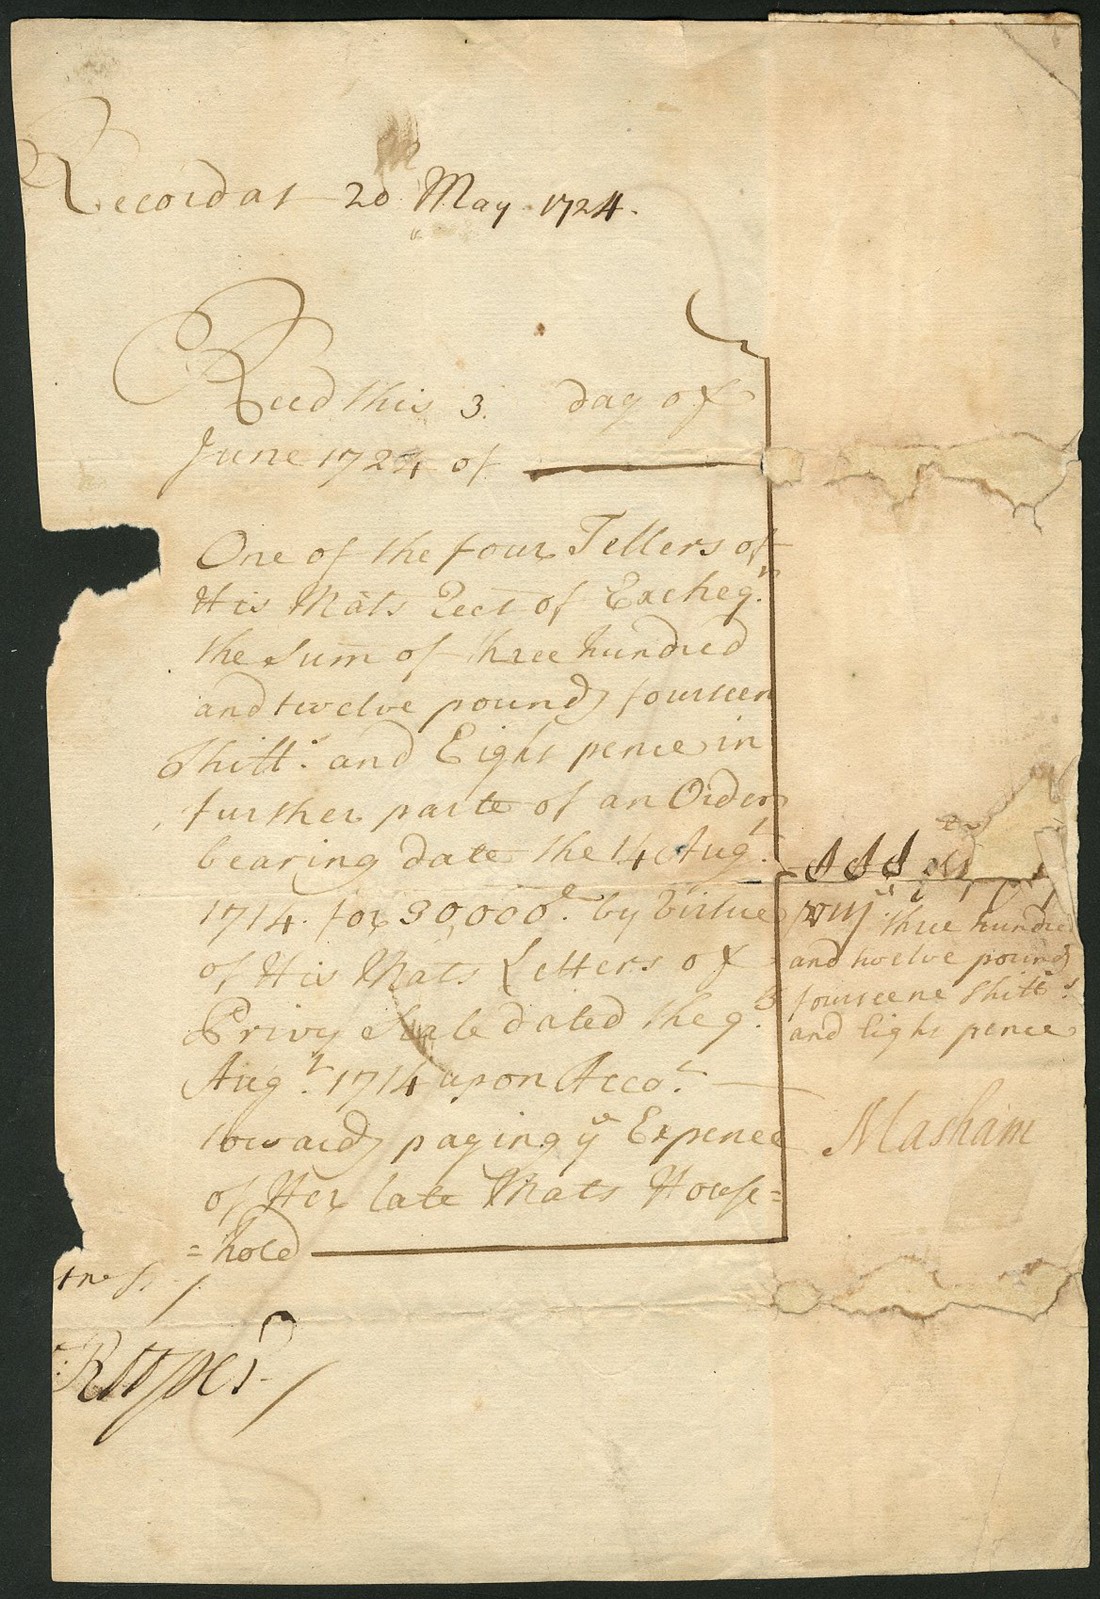 Recordat 20 May 1724.
Recd this 3. day of
June 1724 of
One of the four Tellers of
His Mats Rect of Excheqr.
the Summ of three hundred
and twelve pounds fourteen
Shill: and Eight pence in
further parte of an Order
bearing date the 14 Augt.
1714. for 30,000l. by Virtue
of His Mats Letters of
Privy Seale dated the 9.
Augt. 1714 upon Accot.
towards paying ye Expence
of Her late Mats House=
=hold
three hundred
and twelve pounds
fourteene Shill:s
and Eight pence
Masham
tness